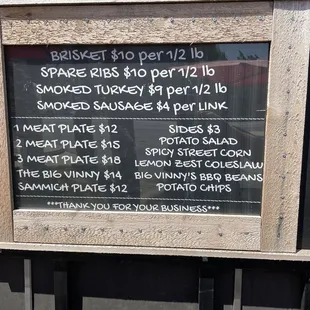 BRISKET $10 per 1/2 lb
SPARE RIBS $10 per 1/2 lb
SMOKED TURKEY $9 per 1/2 lb
SMOKED SAUSAGE $4 per LINK
1 MEAT PLATE $12
2 MEAT PLATE $15
3 MEAT PLATE $18
THE BIG VINNY $14
SAMMICH PLATE $12
SIDES $3
POTATO SALAD
SPICY STREET CORN
LEMON ZEST COLESLAW
BIG VINNY'S BBQ BEANS
POTATO CHIPS
***THANK YOU FOR YOUR BUSINESS***